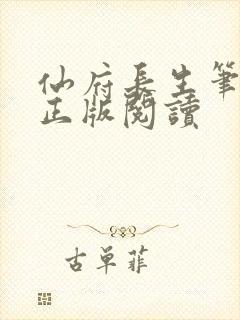 仙府長生筆
正版閱讀
古單菲